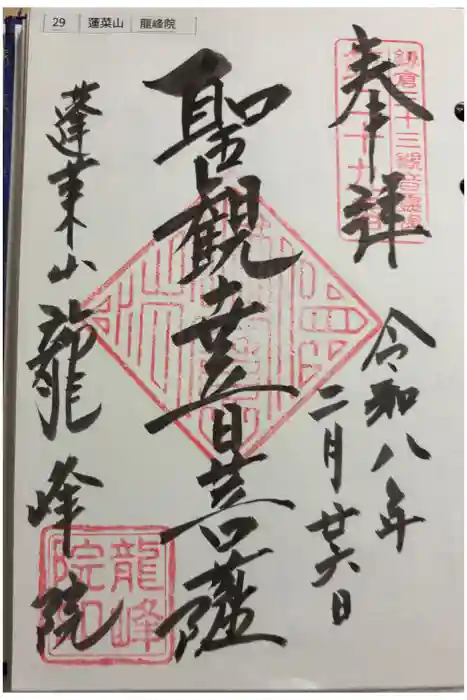 29 蓬莱山 龍峰院
奉拝
鎌倉三十三観音霊場
第二十九番
令和八年
二月廿六日
聖観世音菩薩
蓬莱山 龍峰院
龍峰
院印